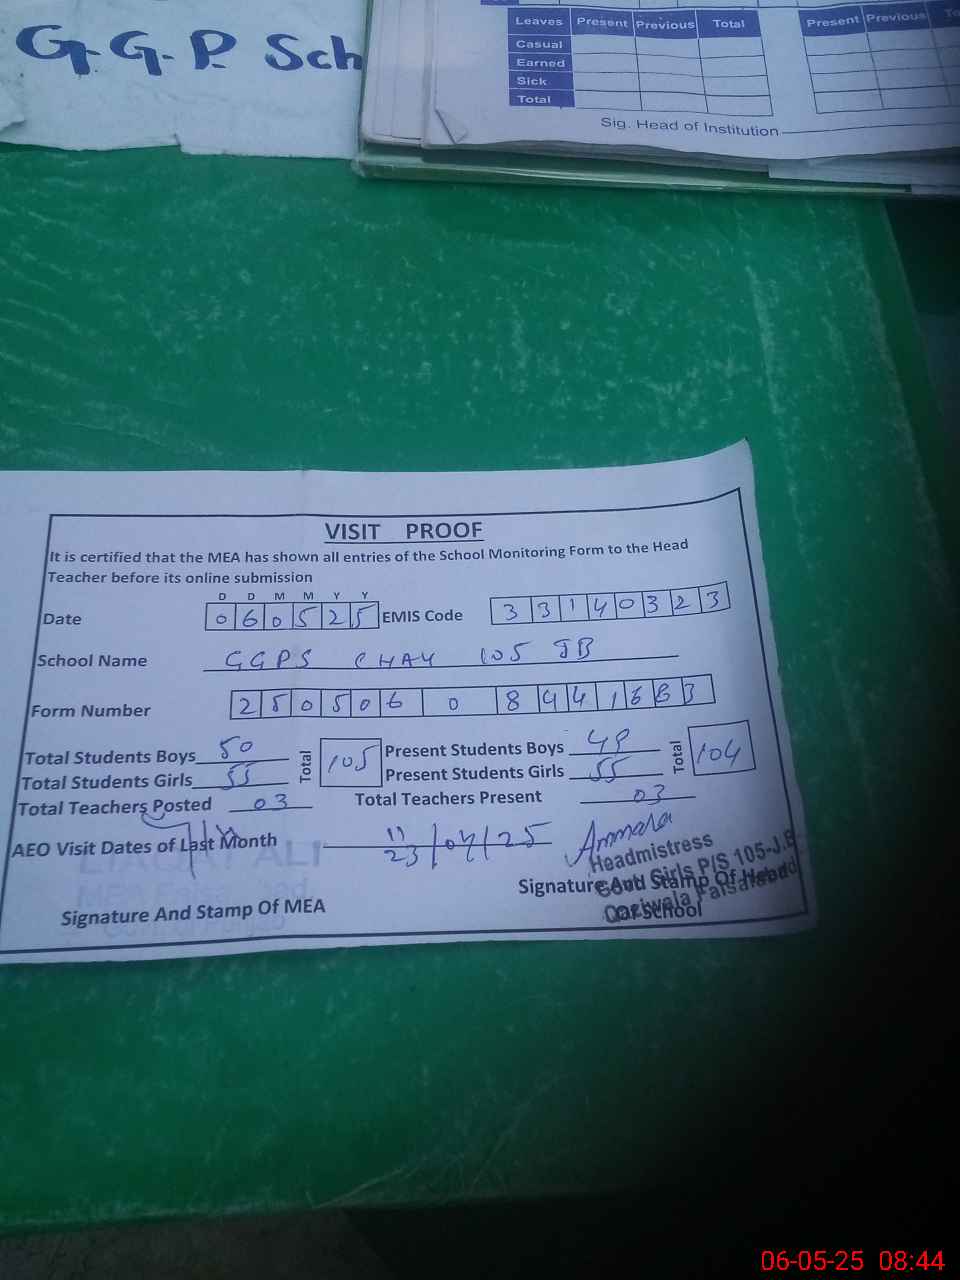 G.G.P. Sch
Leaves Present Previous Total
Casual
Earned
Sick
Total
Present Previous To
Sig. Head of Institution
VISIT PROOF
It is certified that the MEA has shown all entries of the School Monitoring Form to the Head
Teacher before its online submission
D D M M Y Y
Date 0 6 0 5 2 5 EMIS Code 3 3 1 4 0 3 2 3
School Name GGPS CHAK 105 JB
Form Number 2 5 0 5 0 6 0 8 4 4 1 6 8 3
Total Students Boys 50 Total 105 Present Students Boys 49 Total 104
Total Students Girls 55 Present Students Girls 55
Total Teachers Posted 03 Total Teachers Present 03
AEO Visit Dates of Last Month 11 23/04/25
LIAQAT ALI
Headmistress
Govt Girls P/S 105-J.B
Signature And Stamp Of Head
Of School
Signature And Stamp Of MEA
06-05-25 08:44